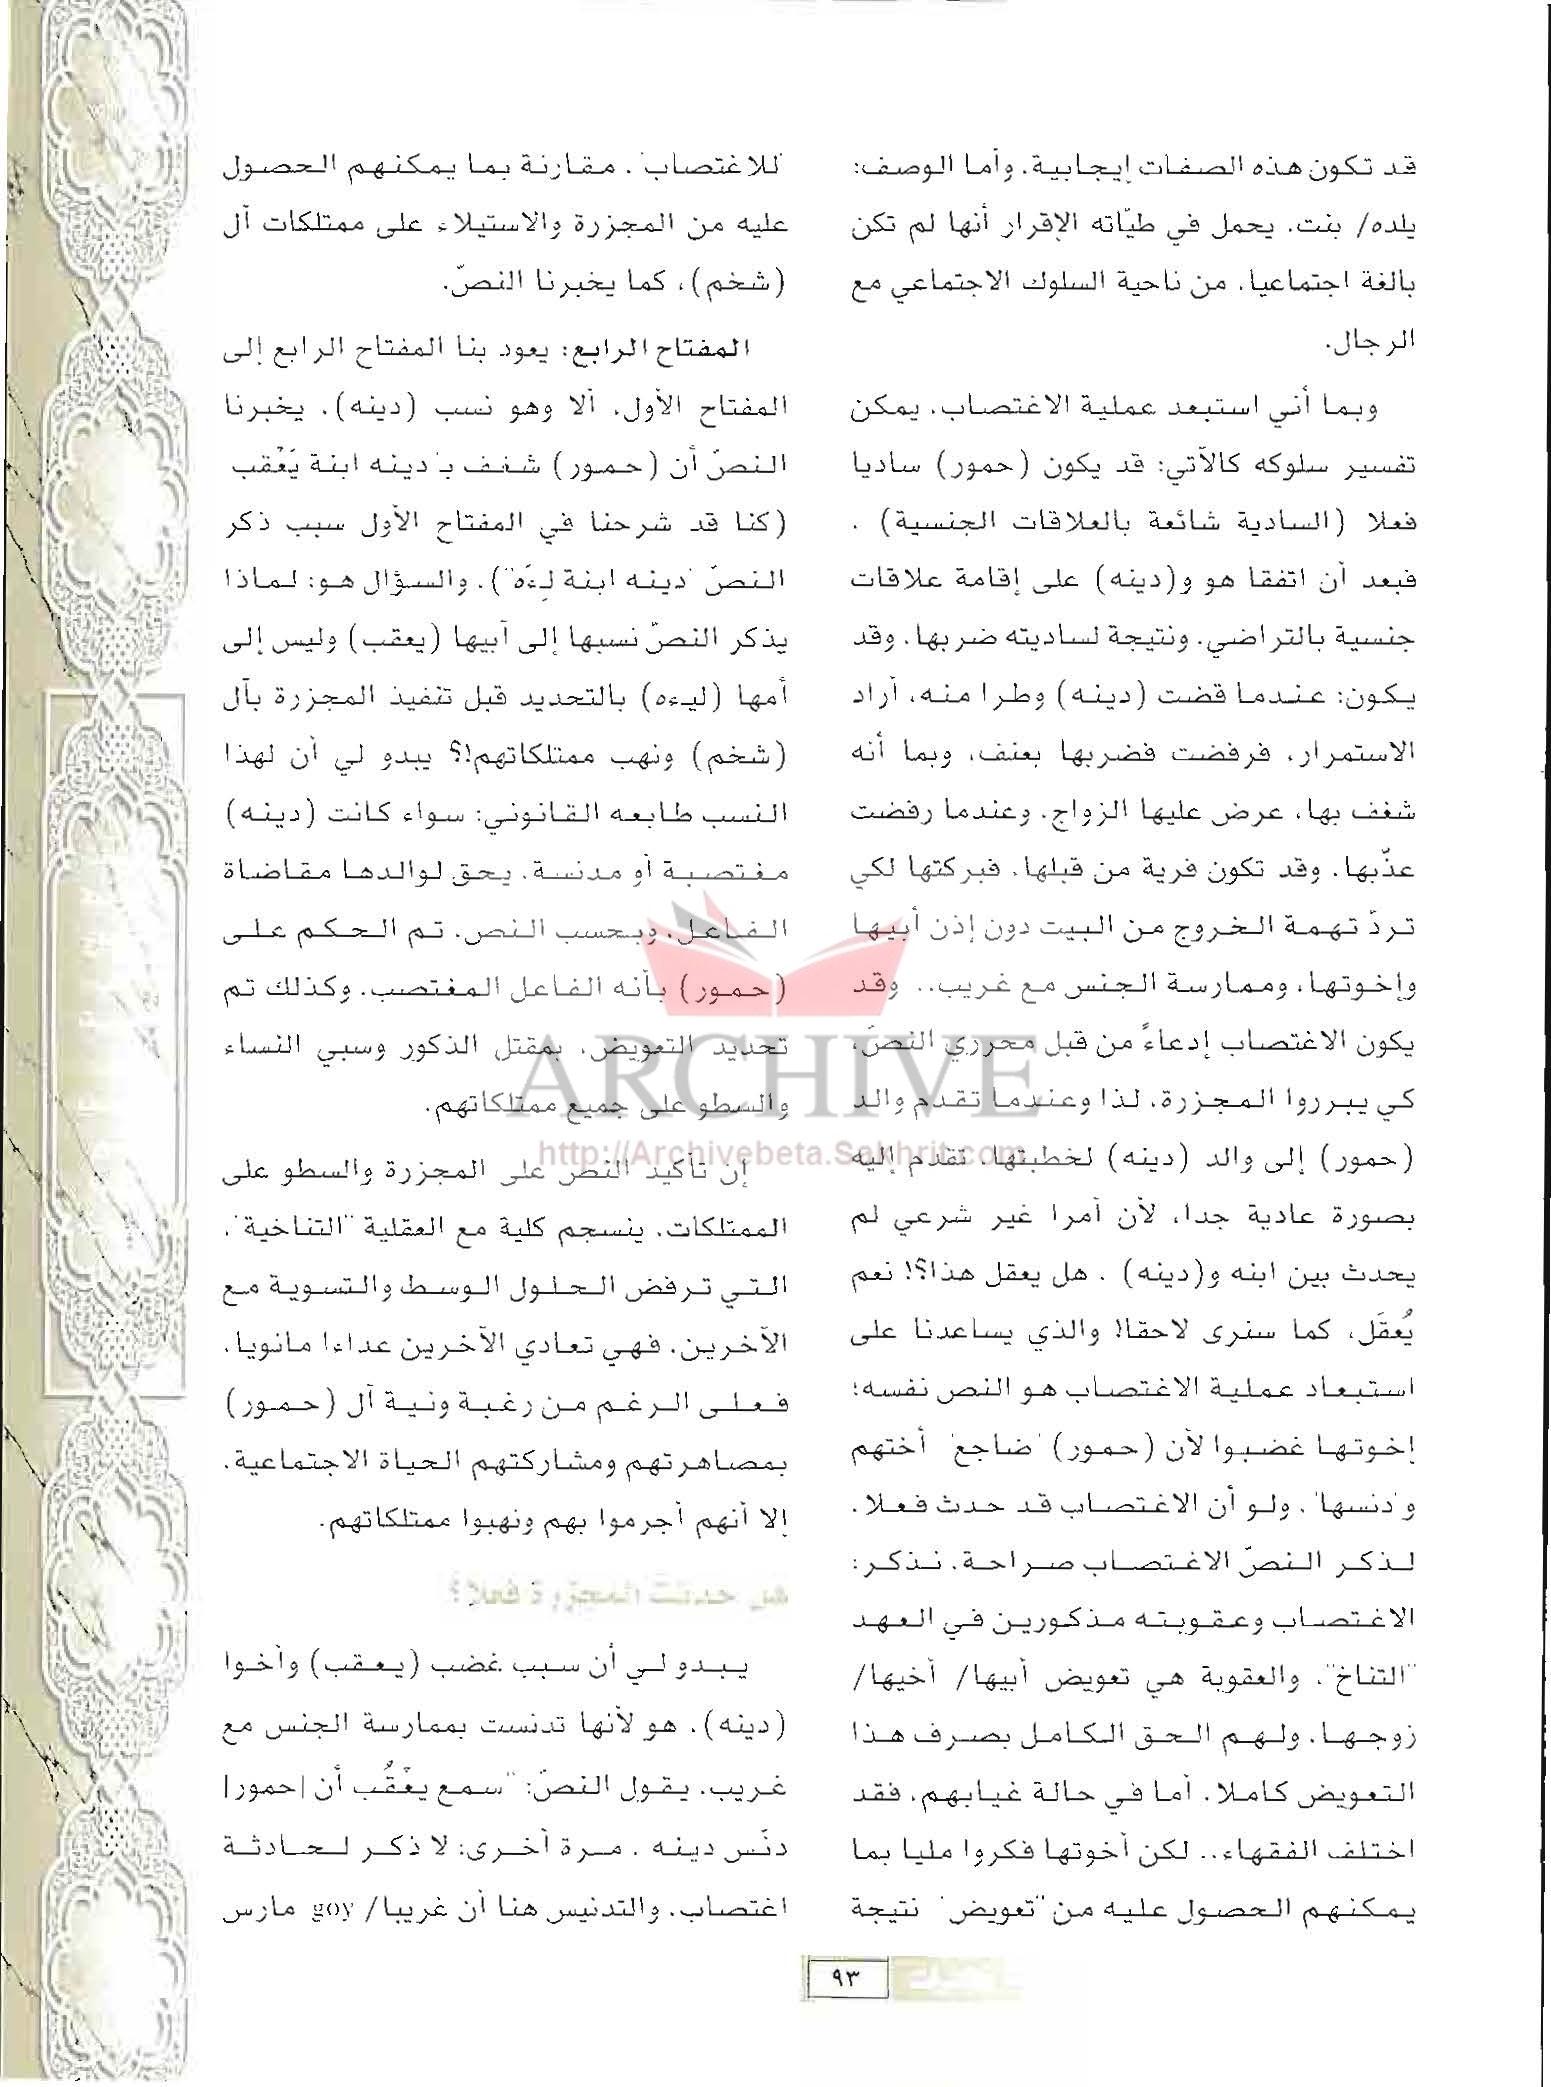 قد تكون هذه الصفات إيجابية. وأما الوصف:
يلده/ بنت. يحمل في طيّاته الإقرار أنها لم تكن
بالغة اجتماعيا. من ناحية السلوك الاجتماعي مع
الرجال.
وبما أني استبعد عملية الاغتصاب. يمكن
تفسير سلوكه كالآتي: قد يكون (حمور) ساديا
فعلا (السادية شائعة بالعلاقات الجنسية) .
فبعد أن اتفقا هو و(دينه) على إقامة علاقات
جنسية بالتراضي. ونتيجة لساديته ضربها. وقد
يكون: عندما قضت (دينه) وطرا منه، أراد
الاستمرار، فرفضت فضربها بعنف، وبما أنه
شغف بها، عرض عليها الزواج. وعندما رفضت
عذّبها. وقد تكون فرية من قبلها. فبركتها لكي
تردّ تهمة الخروج من البيت دون إذن أبيها
وإخوتها، وممارسة الجنس مع غريب.. وقد
يكون الاغتصاب إدعاءً من قبل محرري النصّ،
كي يبرروا المجزرة. لذا وعندما تقدم والد
(حمور) إلى والد (دينه) لخطبتها. تقدم إليه
بصورة عادية جدا، لأن أمرا غير شرعي لم
يحدث بين ابنه و(دينه) . هل يعقل هذا؟! نعم
يُعقَل، كما سنرى لاحقا! والذي يساعدنا على
استبعاد عملية الاغتصاب هو النص نفسه؛
إخوتها غضبوا لأن (حمور) "ضاجع" أختهم
و"دنسها". ولو أن الاغتصاب قد حدث فعلا.
لذكر النصّ الاغتصاب صراحة. نذكر:
الاغتصاب وعقوبته مذكورين في العهد
"التناخ". والعقوبة هي تعويض أبيها/ أخيها/
زوجها. ولهم الحق الكامل بصرف هذا
التعويض كاملا. أما في حالة غيابهم، فقد
اختلف الفقهاء.. لكن أخوتها فكروا مليا بما
يمكنهم الحصول عليه من "تعويض" نتيجة
"للاغتصاب". مقارنة بما يمكنهم الحصول
عليه من المجزرة والاستيلاء على ممتلكات آل
(شخم)، كما يخبرنا النصّ.
المفتاح الرابع: يعود بنا المفتاح الرابع إلى
المفتاح الأول. ألا وهو نسب (دينه). يخبرنا
النصّ أن (حمور) شغف بـ"دينه ابنة يَعْقب"
(كنا قد شرحنا في المفتاح الأول سبب ذكر
النصّ "دينه ابنة لِءَه"). والسؤال هو: لماذا
يذكر النصّ نسبها إلى أبيها (يعقب) وليس إلى
أمها (ليءه) بالتحديد قبل تنفيذ المجزرة بآل
(شخم) ونهب ممتلكاتهم!؟ يبدو لي أن لهذا
النسب طابعه القانوني: سواء كانت (دينه)
مغتصبة أو مدنسة. يحق لوالدها مقاضاة
الفاعل. وبحسب النص. تم الحكم على
(حمور) بأنه الفاعل المغتصب. وكذلك تم
تحديد التعويض. بمقتل الذكور وسبي النساء
والسطو على جميع ممتلكاتهم.
إن تأكيد النص على المجزرة والسطو على
الممتلكات. ينسجم كلية مع العقلية "التناخية".
التي ترفض الحلول الوسط والتسوية مع
الآخرين. فهي تعادي الآخرين عداءا مانويا.
فعلى الرغم من رغبة ونية آل (حمور)
بمصاهرتهم ومشاركتهم الحياة الاجتماعية.
إلا أنهم أجرموا بهم ونهبوا ممتلكاتهم.
هل حدثت المجزرة فعلا؟
يبدو لي أن سبب غضب (يعقب) وأخوا
(دينه). هو لأنها تدنست بممارسة الجنس مع
غريب. يقول النصّ: "سمع يعْقُب أن |حمور|
دنَّس دينه". مرة أخرى: لا ذكر لحادثة
اغتصاب. والتدنيس هنا أن غريبا/ goy مارس
٩٣
ARCHIVE
http://Archivebeta.Sakhrit.com